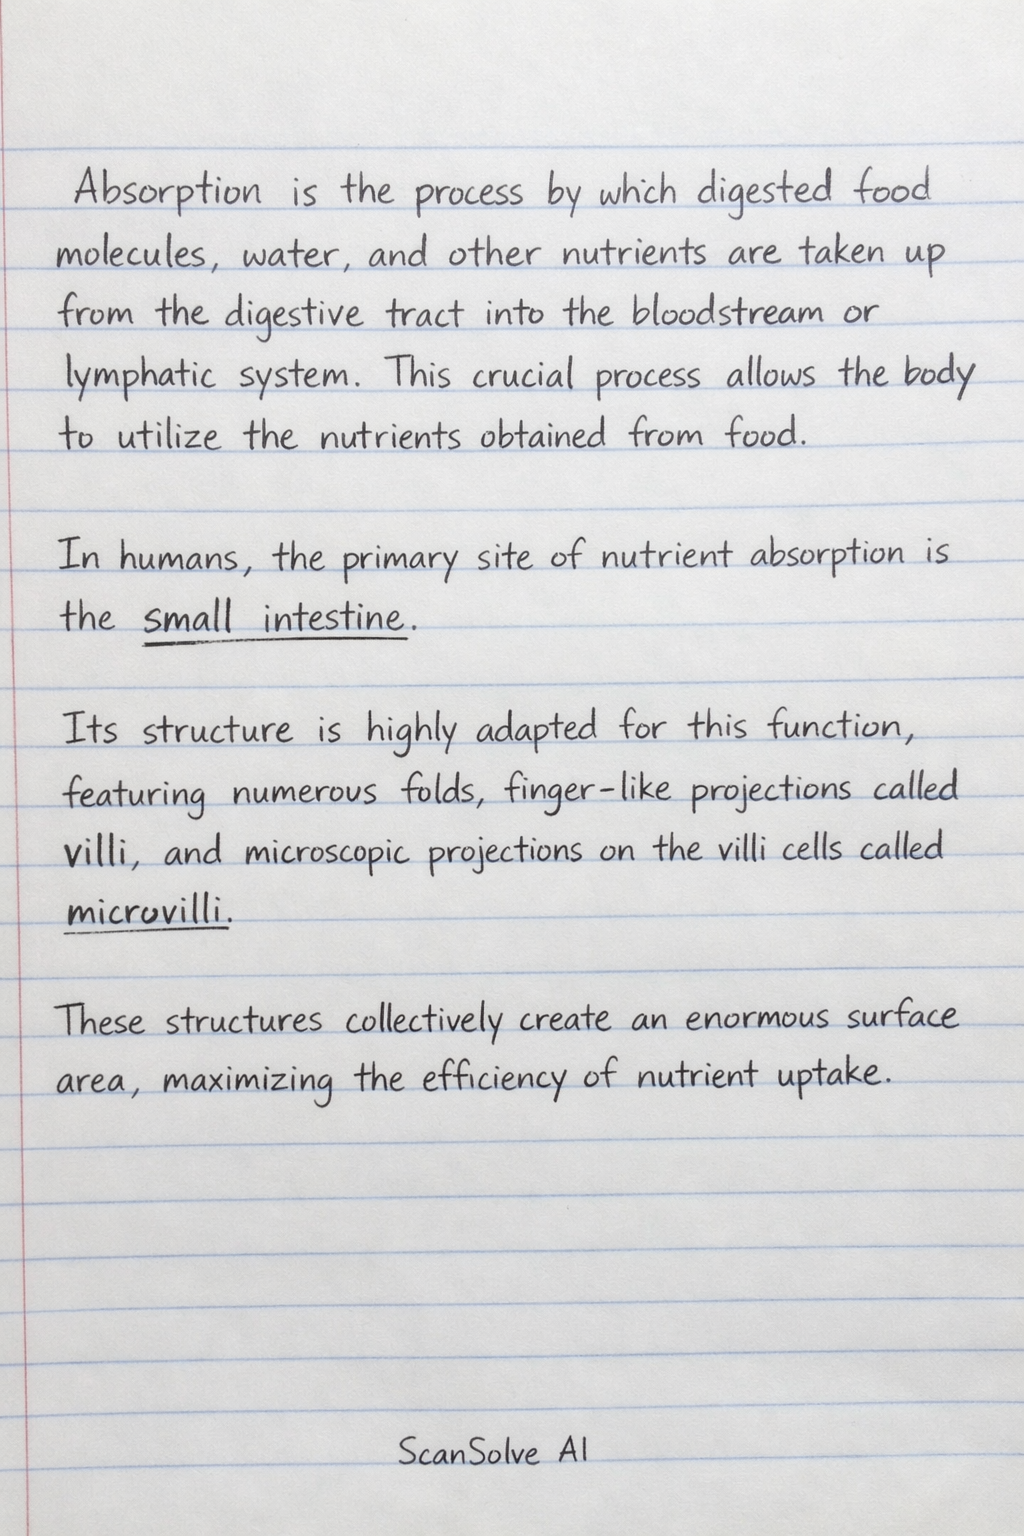 Absorption is the process by which digested food
molecules, water, and other nutrients are taken up
from the digestive tract into the bloodstream or
lymphatic system. This crucial process allows the body
to utilize the nutrients obtained from food.
In humans, the primary site of nutrient absorption is
the small intestine.
Its structure is highly adapted for this function,
featuring numerous folds, finger-like projections called
villi, and microscopic projections on the villi cells called
microvilli.
These structures collectively create an enormous surface
area, maximizing the efficiency of nutrient uptake.
ScanSolve AI